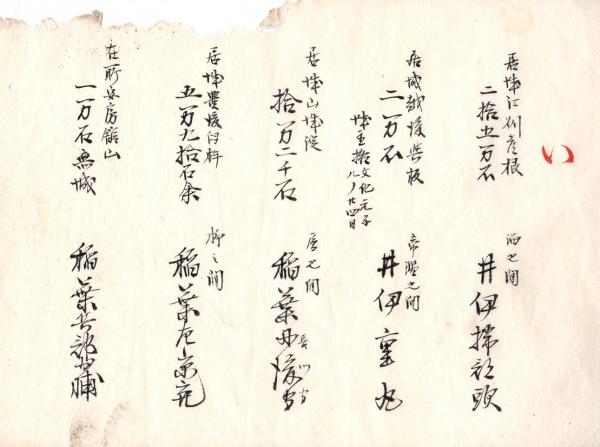 い
居城江州彦根
二拾五万石
溜之間
井伊掃部頭
居城越後与板
二万石
城主格文化元子
八ノ廿四日
帝鑑之間
井伊重丸
居城山城淀
拾万二千石
雁之間
稲葉丹後守
長門守
居城豊後臼杵
五万九拾石余
柳之間
稲葉左京亮
在所安房館山
一万石無城
稲葉兵部少輔